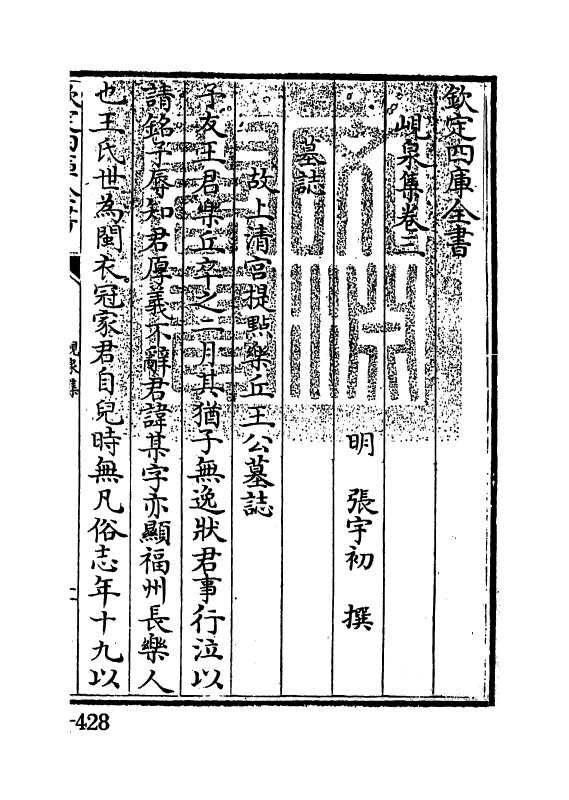 欽定四庫全書
峴泉集卷三
明 張宇初 撰
墓誌
故上清宮提點樂丘王公墓誌
予友王君樂丘卒之二月其猶子無逸狀君事行泣以
請銘予辱知君厚義不辭君諱某字亦顯福州長樂人
也王氏世為閩衣冠家君自兒時無凡俗志年十九以
欽定四庫全書
峴泉集
-428